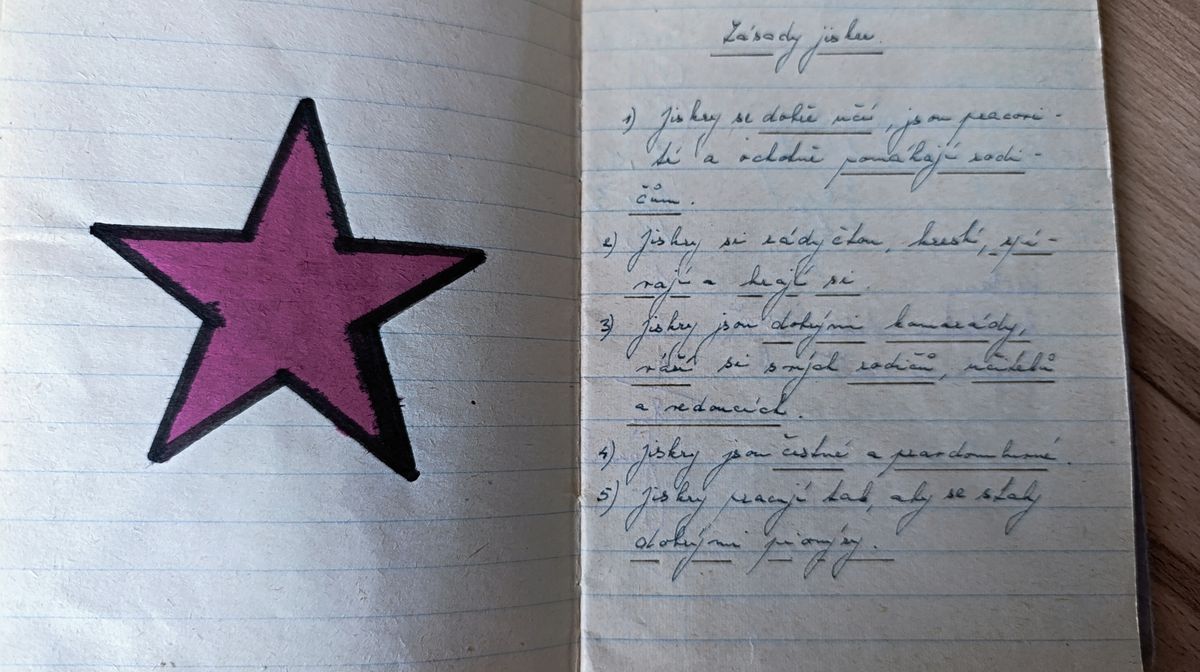 Zásady jisker.
1) Jiskry se dobře učí, jsou pracovi-
té a ochotně pomáhají rodi-
čům.
2) Jiskry si rády čtou, kreslí, zpí-
vají a hrají si.
3) Jiskry jsou dobrými kamarády,
váží si svých rodičů, učitelů
a vedoucích.
4) Jiskry jsou čestné a pravdomluvné.
5) Jiskry pracují tak, aby se staly
dobrými pionýry.